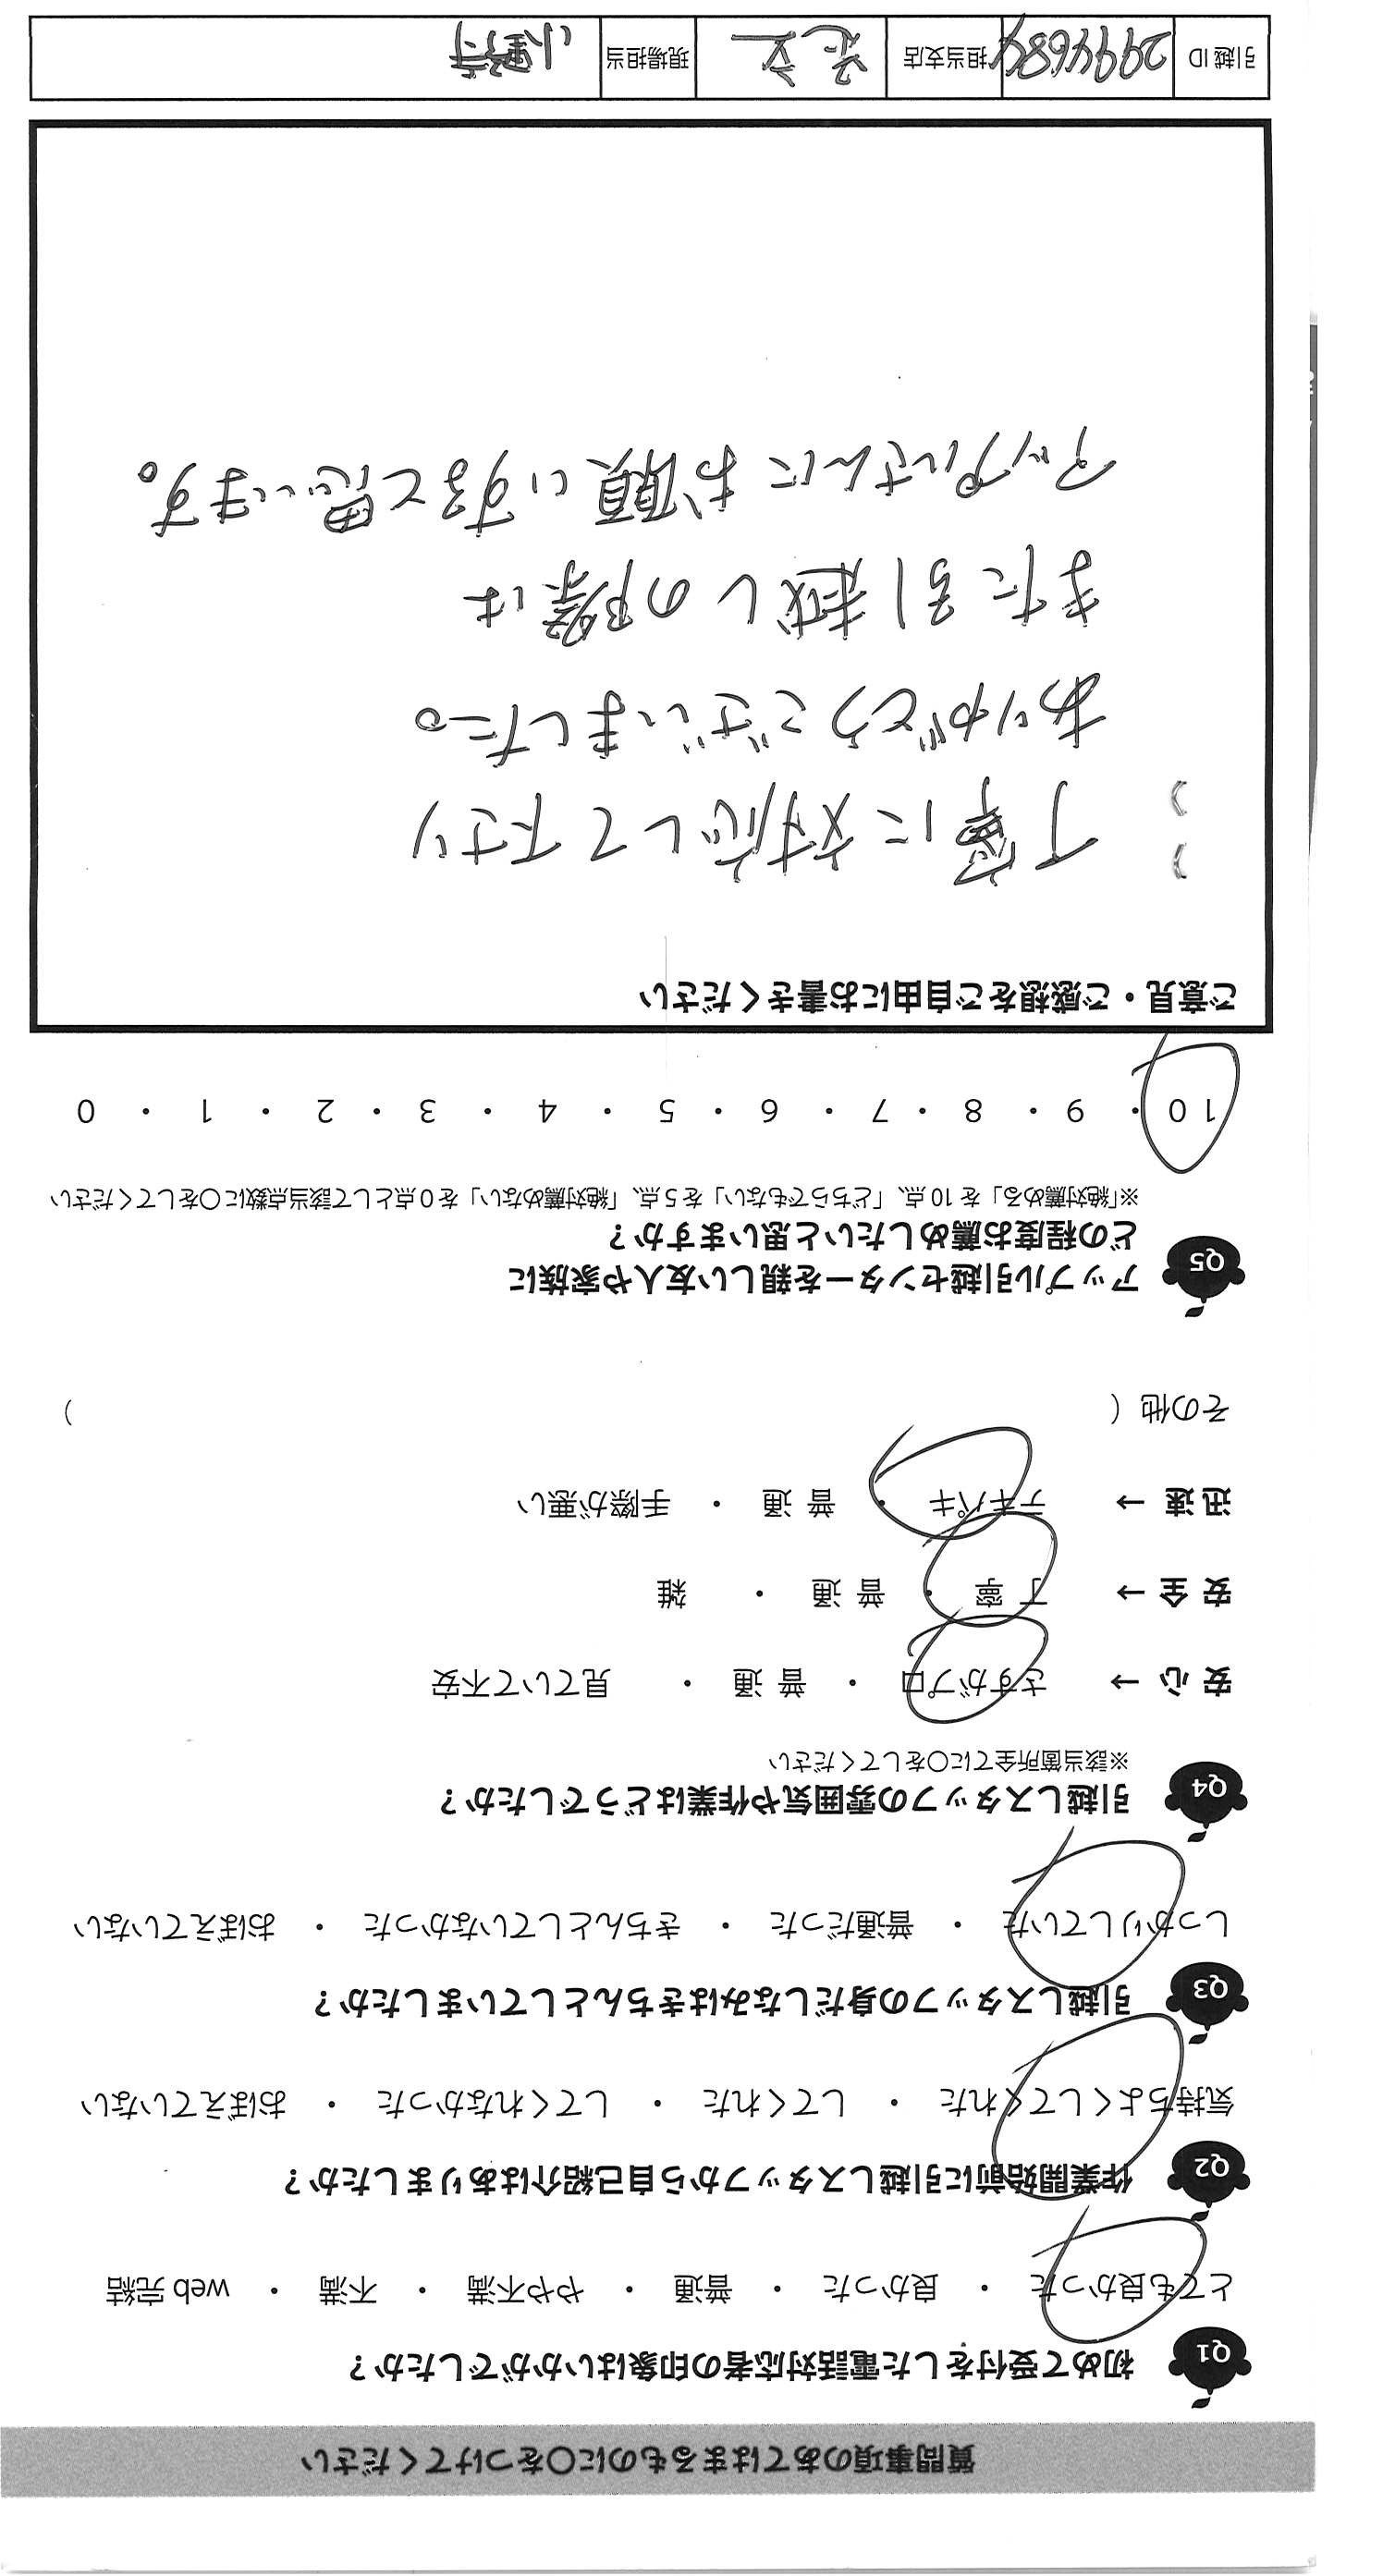 質問事項のあてはまるものに○をつけてください
Q1 初めて受付をした電話対応者の印象はいかがでしたか？
とても良かった ・ 良かった ・ 普通 ・ やや不満 ・ 不満 ・ web 完結
Q2 作業開始前に引越しスタッフから自己紹介はありましたか？
気持ちよくしてくれた ・ してくれた ・ してくれなかった ・ おぼえていない
Q3 引越しスタッフの身だしなみはきちんとしていましたか？
しっかりしていた ・ 普通だった ・ きちんとしていなかった ・ おぼえていない
Q4 引越しスタッフの雰囲気や作業はどうでしたか？
※該当箇所全てに○をしてください
安 心 → さすがプロ ・ 普 通 ・ 見ていて不安
安 全 → 丁 寧 ・ 普 通 ・ 雑
迅 速 → テキパキ ・ 普 通 ・ 手際が悪い
その他（ ）
Q5 アップル引越センターを親しい友人や家族に
どの程度お薦めしたいと思いますか？
※「絶対薦める」を 10 点、「どちらでもない」を 5 点、「絶対薦めない」を 0 点として該当点数に○をしてください
10 ・ 9 ・ 8 ・ 7 ・ 6 ・ 5 ・ 4 ・ 3 ・ 2 ・ 1 ・ 0
ご意見・ご感想をご自由にお書きください
丁寧に対応して下さり
ありがとうございました。
また引越しの際は
アップルさんにお願いすると思います。
引越 ID 2994684 担当支店 足立 現場担当 小野寺